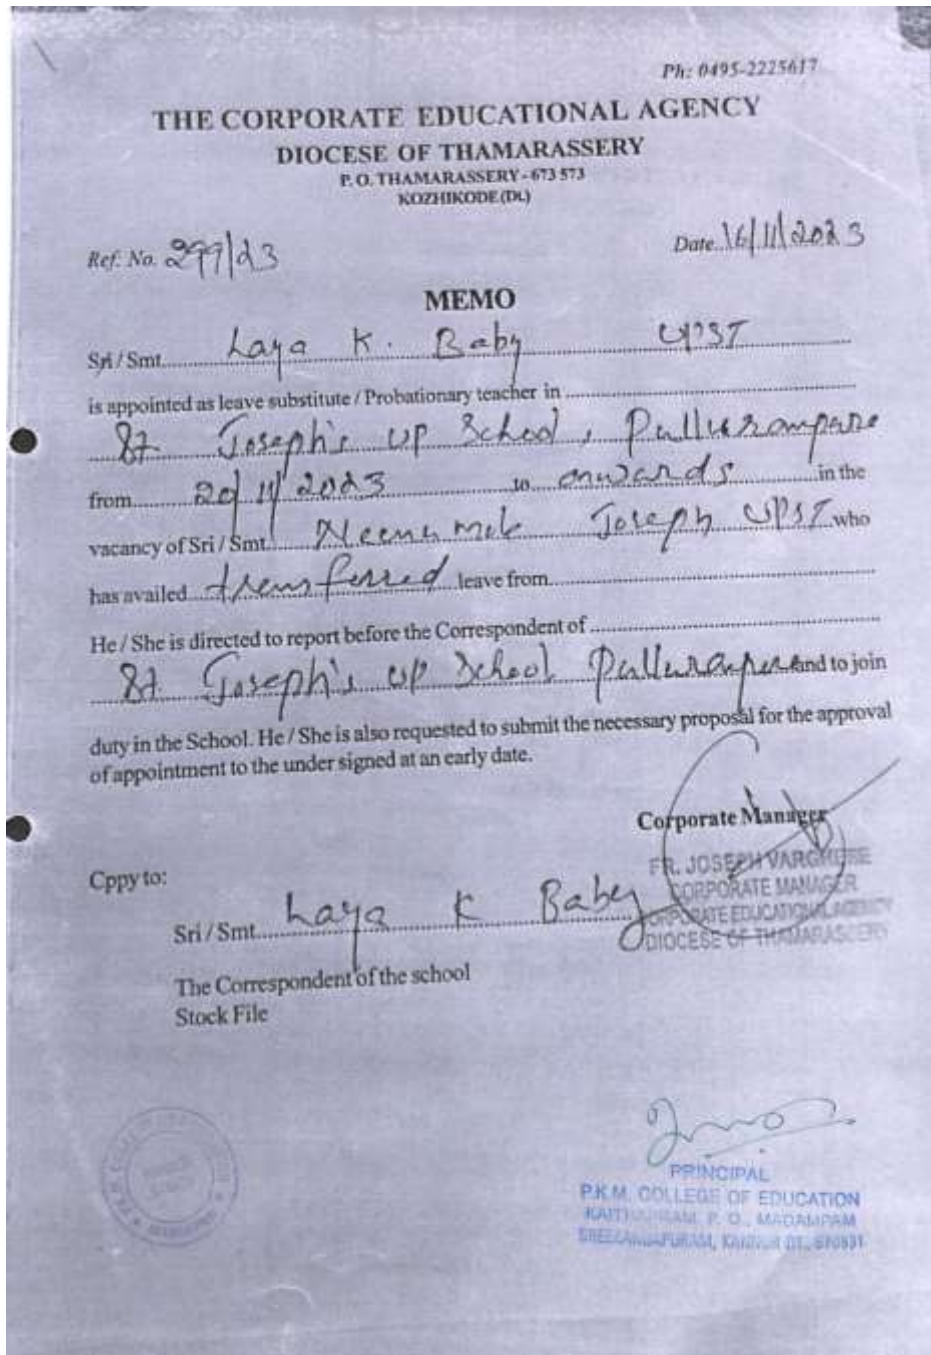 Ph: 0495-2225617
THE CORPORATE EDUCATIONAL AGENCY
DIOCESE OF THAMARASSERY
P. O. THAMARASSERY - 673 573
KOZHIKODE (Dt.)
Ref. No. 299/23
Date 16/11/2023
MEMO
Sri / Smt. Laya K. Baby UPST
is appointed as leave substitute / Probationary teacher in
St Joseph's UP School, Pullurampara
from 20/11/2023 to onwards in the
vacancy of Sri / Smt. Neenu mol Joseph UPST who
has availed transferred leave from
He / She is directed to report before the Correspondent of
St Joseph's UP School Pullurampara and to join
duty in the School. He / She is also requested to submit the necessary proposal for the approval
of appointment to the under signed at an early date.
Corporate Manager
FR. JOSEPH VARGHESE
CORPORATE MANAGER
CORPORATE EDUCATIONAL AGENCY
DIOCESE OF THAMARASSERY
Cppy to:
Sri / Smt. Laya K Baby
The Correspondent of the school
Stock File
PRINCIPAL
P.K.M. COLLEGE OF EDUCATION
P. O., MADAMPAM
KANNUR DT., 670631